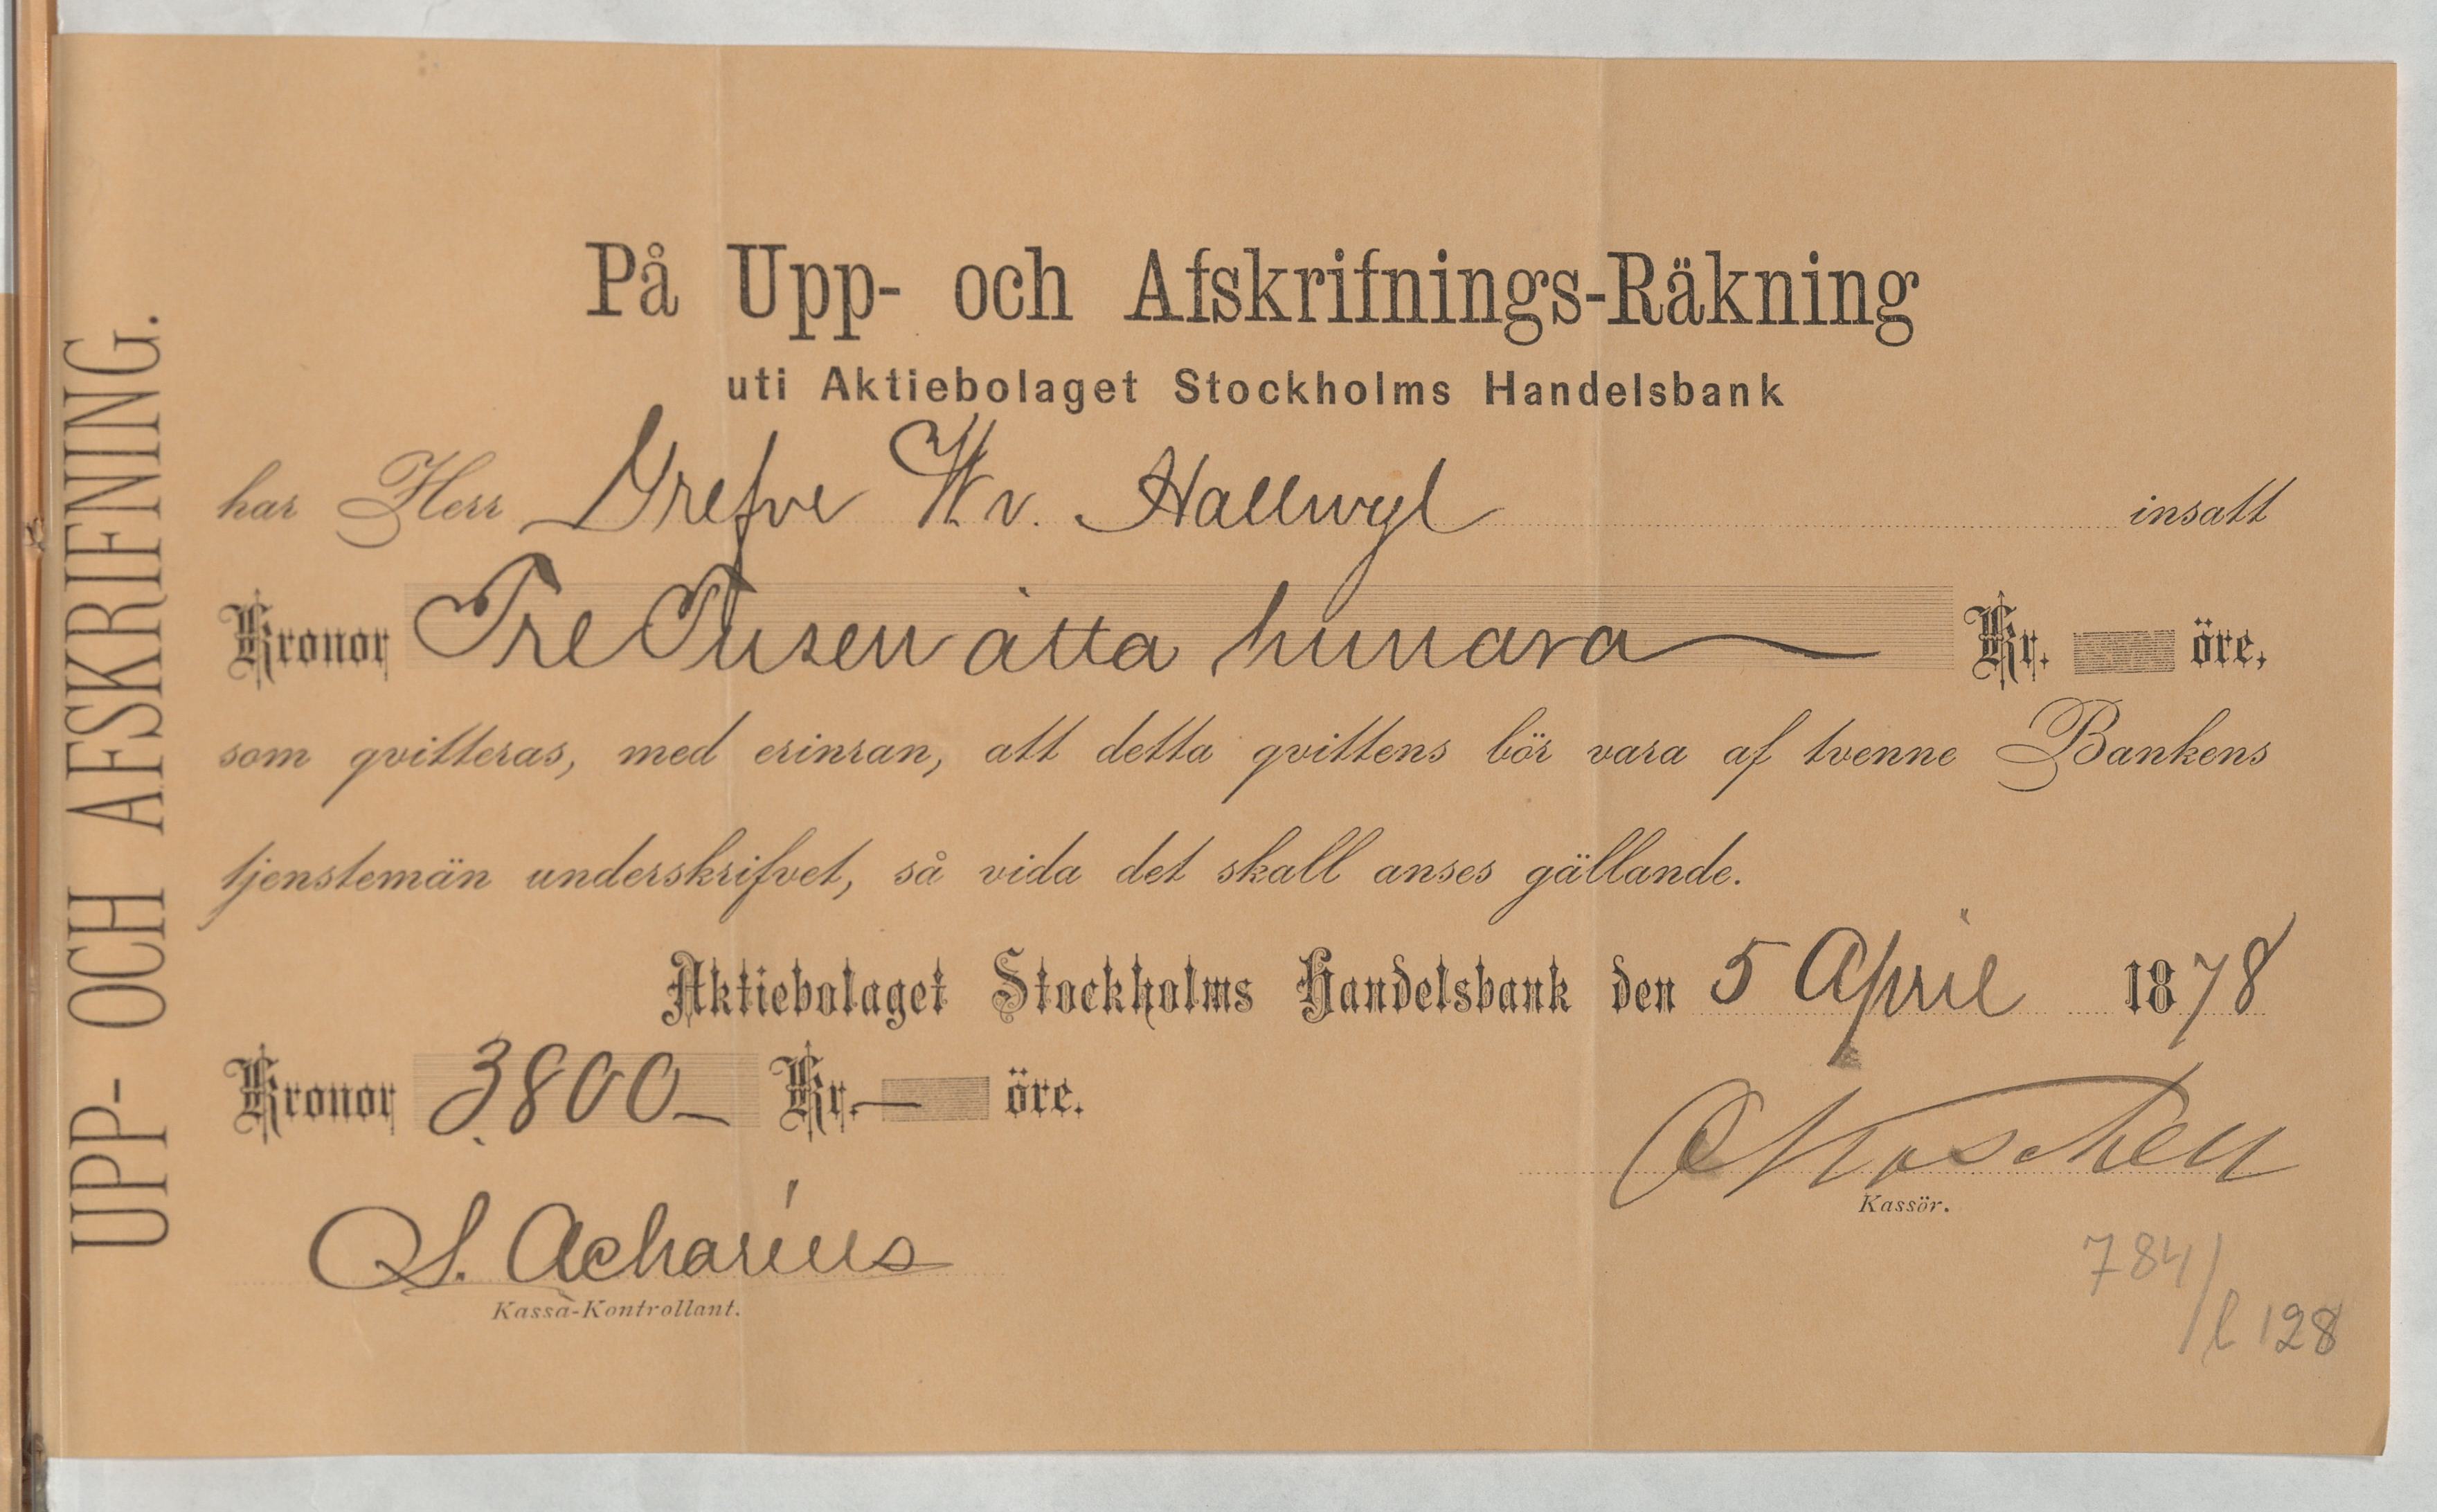 UPP- OCH AFSKRIFNING.
På Upp- och Afskrifnings-Räkning
uti Aktiebolaget Stockholms Handelsbank
har Herr Grefve W v. Hallwyl insatt
Kronor Tre Tusen åtta hundra Kr. öre,
som qvitteras, med erinran, att detta qvittens bör vara af tvenne Bankens
tjenstemän underskrifvet, så vida det skall anses gällande.
Aktiebolaget Stockholms Handelsbank den 5 April 1878
Kronor 3800 — Kr. — öre.
Kassör.
S. Acharius
Kassa-Kontrollant.
784/
l 128